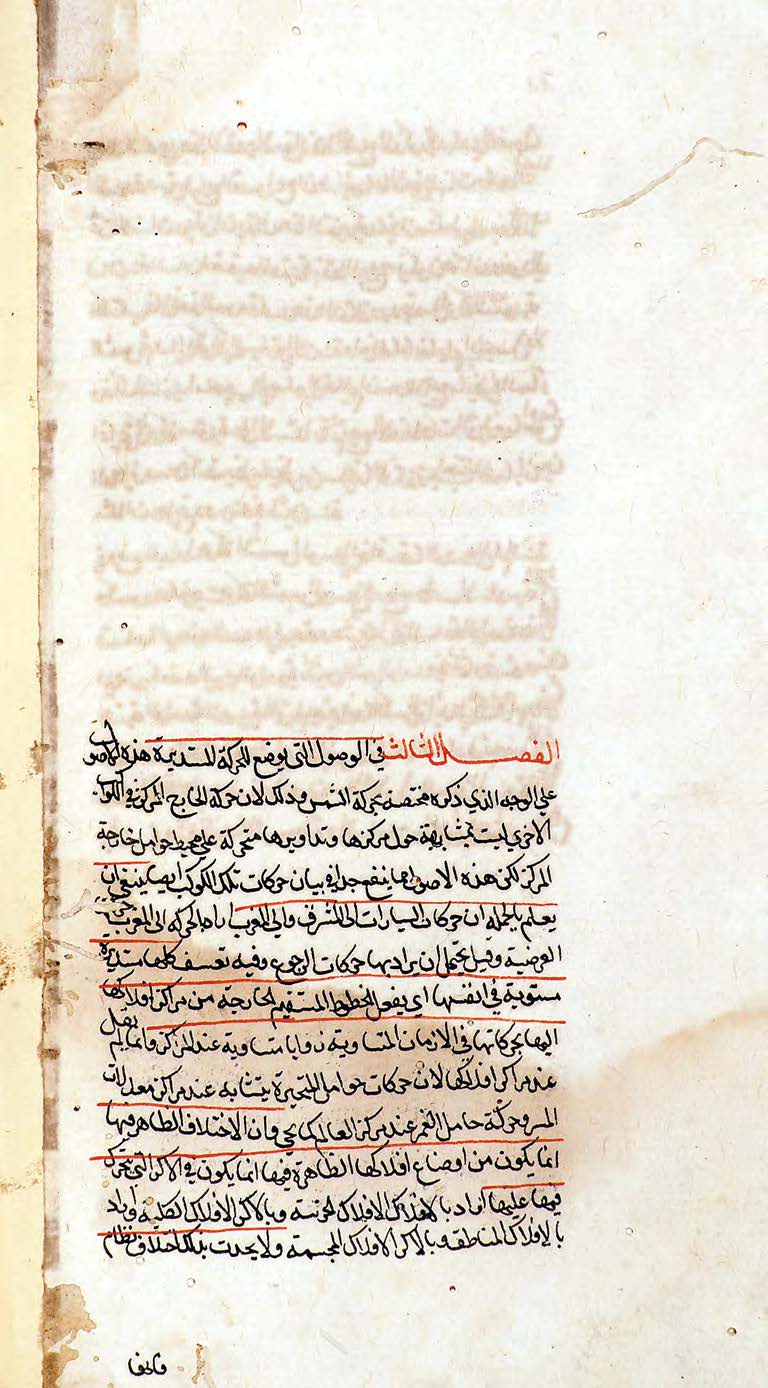 الفصل الثالث في الوصول التي يوضع للحركة المستديرة هذه الاصول
علي الوجه الذي ذكره مختصة بحركة الشمس وذلك لان حركة الخارج المركز في الكواكب
الاخري ليست بمتشابهة حول مركزها وتداويرها متحركة علي محيط حوامل خارجة
المركز لكن هذه الاصول مما ينفع جدا في بيان حركات تلك الكواكب ايضا ينبغي ان
يعلم بالجمله ان حركات السيارات الي المشرق والي المغرب اراد بالحركه الي المغرب
العرضية وقيل يحتمل ان يراد بها حركات الرجوع وفيه تعسف كلها مستديرة
مستوية في انفسها اي يفعل الخطوط المستقيم الخارجة من مراكز افلاكها
اليها بحركاتها في الازمان المتساوية زوايا متساوية عند المراكز وانما لم يقل
عند مراكز افلاكها لان حركات حوامل المتحيرة يتشابه عند مراكز معدلات
المسير وحركة حامل القمر عند مركز العالم كما يجي وان الاختلاف الظاهر فيها
انما يكون من اوضاع افلاكها الظاهرة فيها انما يكون في الاكر التي يتحرك
فيها عليها اراد بالافلاك الافلاك الجزئية وبالاكر الافلاك الكلية او اراد
بالافلاك المناطقه وبالاكر الافلاك المجسمة ولا يحدث بذلك اختلاف ونظام